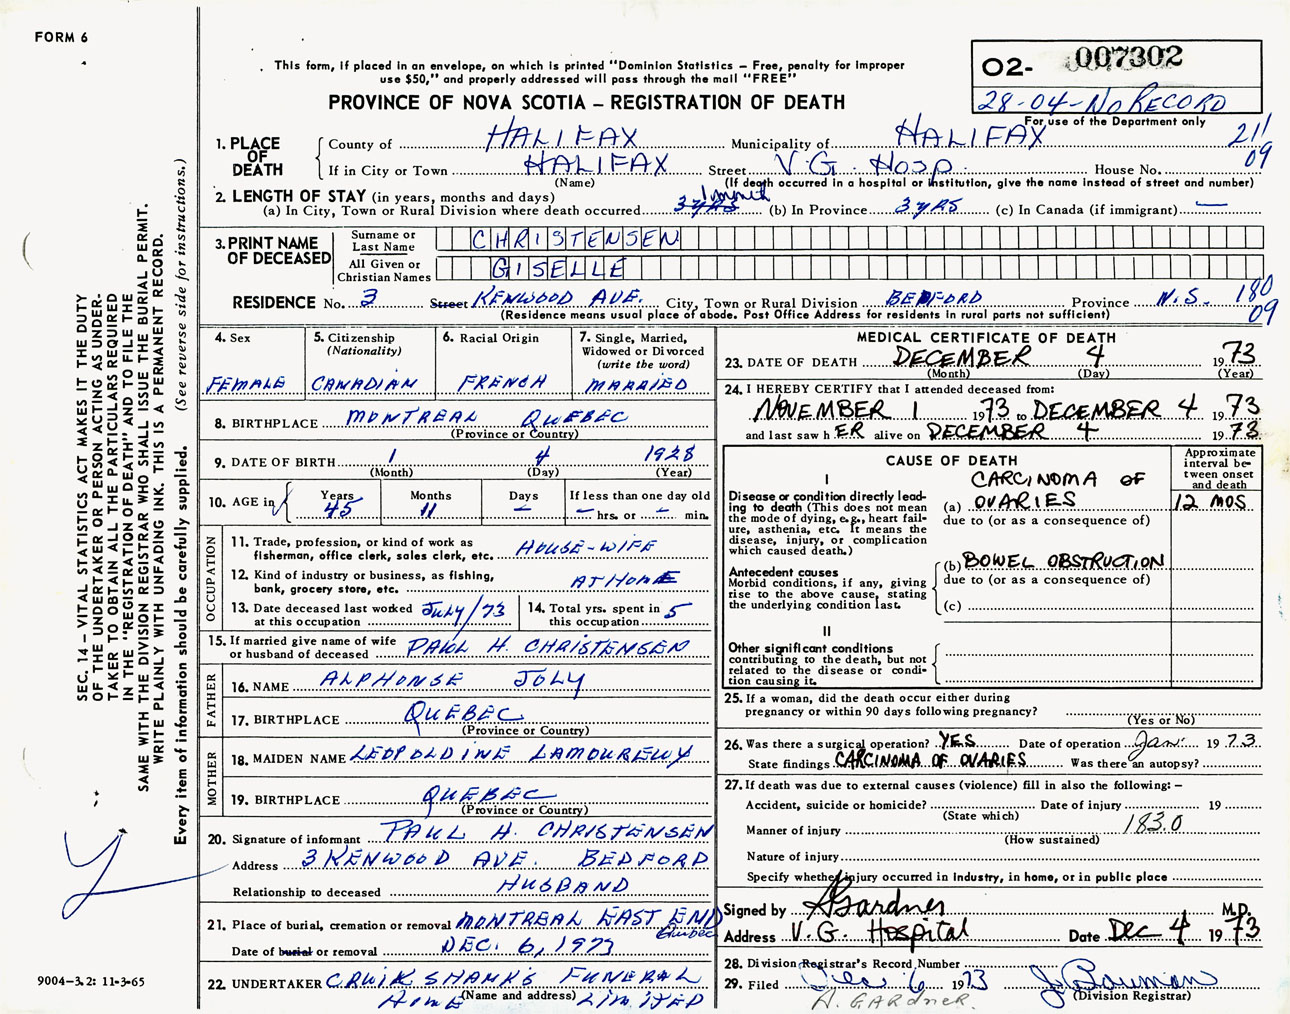 FORM 6
This form, if placed in an envelope, on which is printed "Dominion Statistics – Free, penalty for improper
use $50," and properly addressed will pass through the mail "FREE"
PROVINCE OF NOVA SCOTIA – REGISTRATION OF DEATH
02- 007302
28-04-NO RECORD
For use of the Department only
211
09
1. PLACE OF DEATH
County of HALIFAX Municipality of HALIFAX
If in City or Town HALIFAX Street V.G. Hosp. House No.
(Name) (If death occurred in a hospital or institution, give the name instead of street and number)
2. LENGTH OF STAY (in years, months and days) 1 month
(a) In City, Town or Rural Division where death occurred 3 yrs (b) In Province 3 yrs (c) In Canada (if immigrant) —
3. PRINT NAME OF DECEASED
Surname or Last Name CHRISTENSEN
All Given or Christian Names GISELLE
RESIDENCE No. 3 Street KENWOOD AVE. City, Town or Rural Division BEDFORD Province N.S.
180
09
(Residence means usual place of abode. Post Office Address for residents in rural parts not sufficient)
4. Sex
FEMALE
5. Citizenship
(Nationality)
CANADIAN
6. Racial Origin
FRENCH
7. Single, Married,
Widowed or Divorced
(write the word)
MARRIED
8. BIRTHPLACE MONTREAL QUEBEC
(Province or Country)
9. DATE OF BIRTH 1 4 1928
(Month) (Day) (Year)
10. AGE in
Years Months Days If less than one day old
45 11 — — hrs. or — min.
OCCUPATION
11. Trade, profession, or kind of work as
fisherman, office clerk, sales clerk, etc. HOUSE-WIFE
12. Kind of industry or business, as fishing,
bank, grocery store, etc. AT HOME
13. Date deceased last worked
at this occupation July/73
14. Total yrs. spent in
this occupation 5
15. If married give name of wife
or husband of deceased PAUL H. CHRISTENSEN
FATHER
16. NAME ALPHONSE JOLY
17. BIRTHPLACE QUEBEC
(Province or Country)
MOTHER
18. MAIDEN NAME LEOPOLDINE
19. BIRTHPLACE QUEBEC
(Province or Country)
20. Signature of informant PAUL H. CHRISTENSEN
Address 3 KENWOOD AVE. BEDFORD
Relationship to deceased HUSBAND
21. Place of burial, cremation or removal MONTREAL EAST END
Quebec
Date of burial or removal DEC. 6, 1973
22. UNDERTAKER CRUIKSHANKS FUNERAL
HOME (Name and address) LIMITED
MEDICAL CERTIFICATE OF DEATH
23. DATE OF DEATH DECEMBER 4 1973
(Month) (Day) (Year)
24. I HEREBY CERTIFY that I attended deceased from:
NOVEMBER 1 1973 to DECEMBER 4 1973
and last saw hER alive on DECEMBER 4 1973
CAUSE OF DEATH
Approximate
interval be-
tween onset
and death
I
Disease or condition directly lead-
ing to death (This does not mean
the mode of dying, e.g., heart fail-
ure, asthenia, etc. It means the
disease, injury, or complication
which caused death.)
CARCINOMA OF
(a) OVARIES 12 MOS
due to (or as a consequence of)
Antecedent causes
Morbid conditions, if any, giving
rise to the above cause, stating
the underlying condition last.
(b) BOWEL OBSTRUCTION
due to (or as a consequence of)
(c)
II
Other significant conditions
contributing to the death, but not
related to the disease or condi-
tion causing it.
25. If a woman, did the death occur either during
pregnancy or within 90 days following pregnancy?
(Yes or No)
26. Was there a surgical operation? YES Date of operation Jan. 1973
State findings CARCINOMA OF OVARIES Was there an autopsy?
27. If death was due to external causes (violence) fill in also the following: –
Accident, suicide or homicide? Date of injury 19
(State which)
Manner of injury 183.0
(How sustained)
Nature of injury
Specify whether injury occurred in industry, in home, or in public place
Signed by Gardner M.D.
Address V.G. Hospital Date Dec 4 1973
28. Division Registrar's Record Number
29. Filed Dec 6 1973
(Division Registrar)
H. GARDNER.
SEC. 14 – VITAL STATISTICS ACT MAKES IT THE DUTY
OF THE UNDERTAKER OR PERSON ACTING AS UNDER-
TAKER TO OBTAIN ALL THE PARTICULARS REQUIRED
IN THE "REGISTRATION OF DEATH" AND TO FILE THE
SAME WITH THE DIVISION REGISTRAR WHO SHALL ISSUE THE BURIAL PERMIT.
WRITE PLAINLY WITH UNFADING INK. THIS IS A PERMANENT RECORD.
Every item of information should be carefully supplied. (See reverse side for instructions.)
9004-3.2: 11-3-65